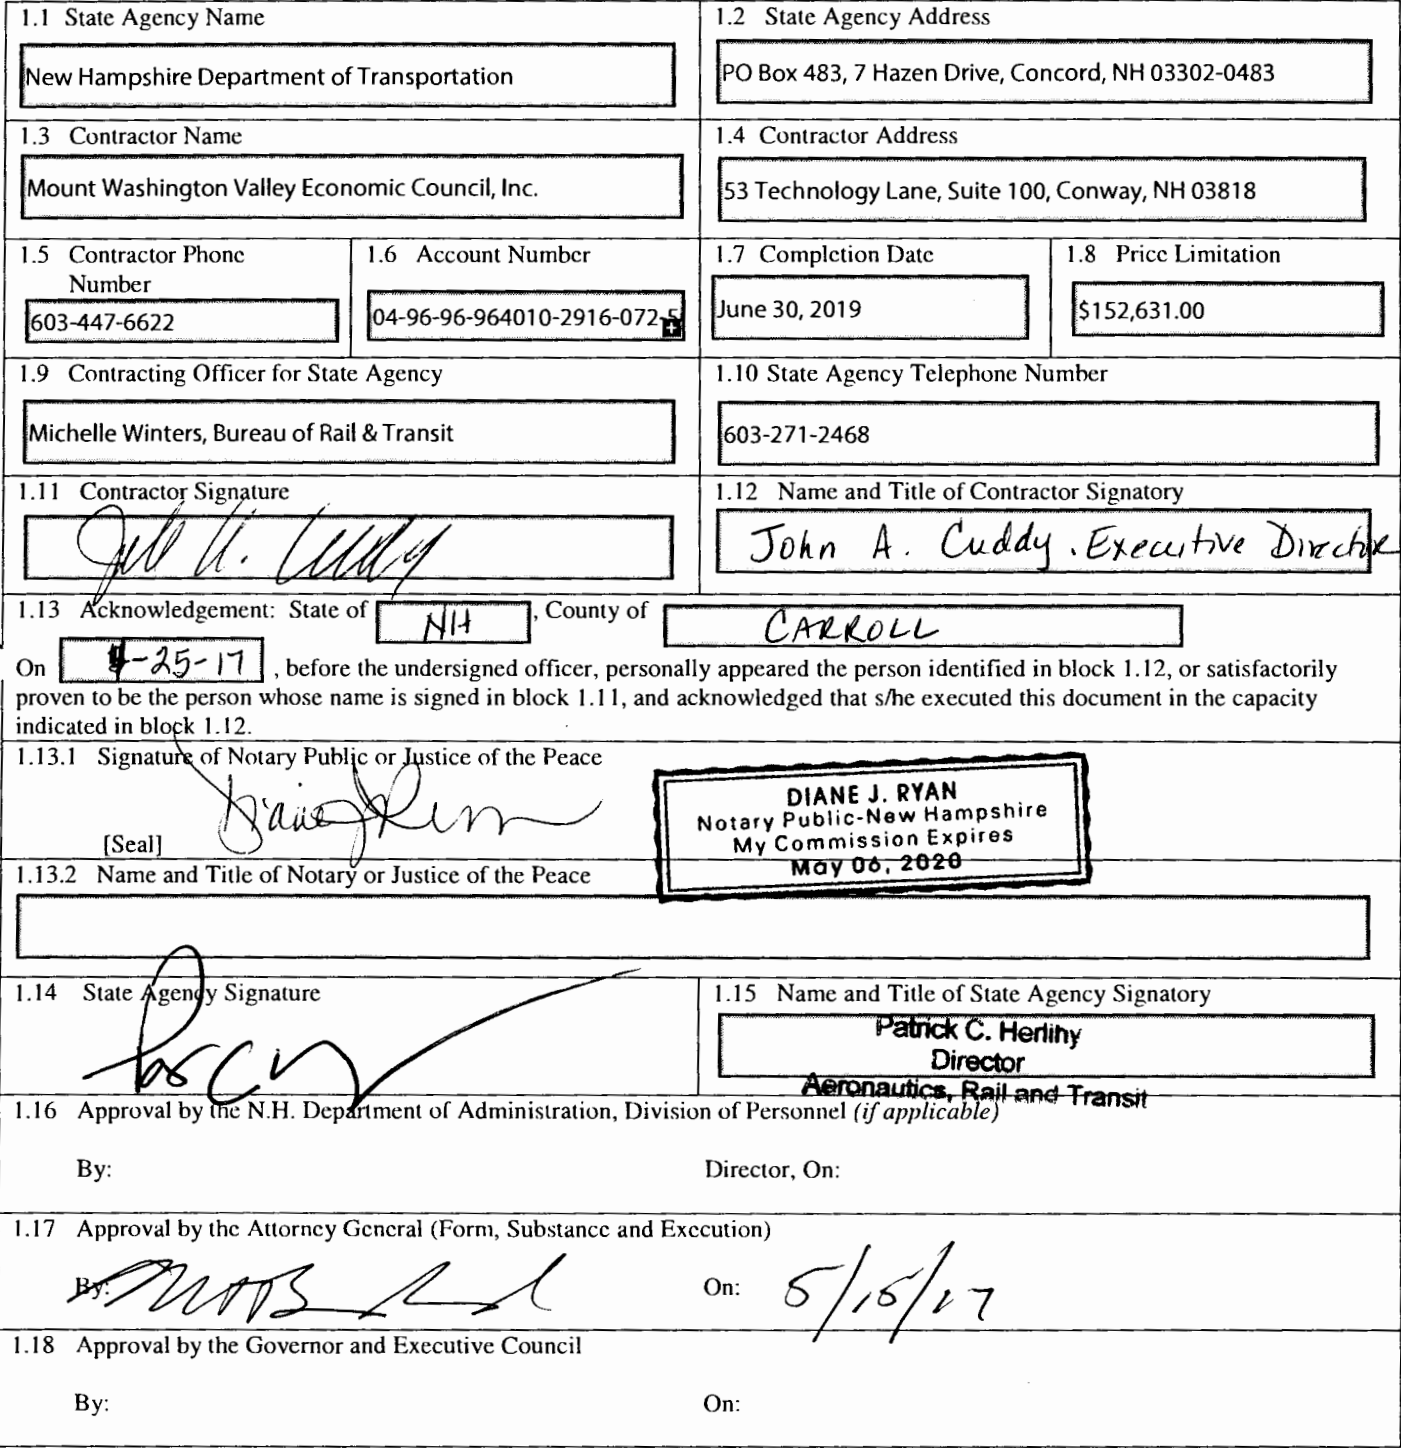 1.1 State Agency Name
New Hampshire Department of Transportation
1.2 State Agency Address
PO Box 483, 7 Hazen Drive, Concord, NH 03302-0483
1.3 Contractor Name
Mount Washington Valley Economic Council, Inc.
1.4 Contractor Address
53 Technology Lane, Suite 100, Conway, NH 03818
1.5 Contractor Phone
Number
603-447-6622
1.6 Account Number
04-96-96-964010-2916-072-5
1.7 Completion Date
June 30, 2019
1.8 Price Limitation
$152,631.00
1.9 Contracting Officer for State Agency
Michelle Winters, Bureau of Rail & Transit
1.10 State Agency Telephone Number
603-271-2468
1.11 Contractor Signature
John A. Cuddy
1.12 Name and Title of Contractor Signatory
John A. Cuddy, Executive Director
1.13 Acknowledgement: State of NH, County of CARROLL
On 4-25-17, before the undersigned officer, personally appeared the person identified in block 1.12, or satisfactorily
proven to be the person whose name is signed in block 1.11, and acknowledged that s/he executed this document in the capacity
indicated in block 1.12.
1.13.1 Signature of Notary Public or Justice of the Peace
[Seal]
DIANE J. RYAN
Notary Public-New Hampshire
My Commission Expires
May 06, 2020
1.13.2 Name and Title of Notary or Justice of the Peace
1.14 State Agency Signature
1.15 Name and Title of State Agency Signatory
Patrick C. Herlihy
Director
Aeronautics, Rail and Transit
1.16 Approval by the N.H. Department of Administration, Division of Personnel (if applicable)
By:
Director, On:
1.17 Approval by the Attorney General (Form, Substance and Execution)
By:
On: 5/15/17
1.18 Approval by the Governor and Executive Council
By:
On: